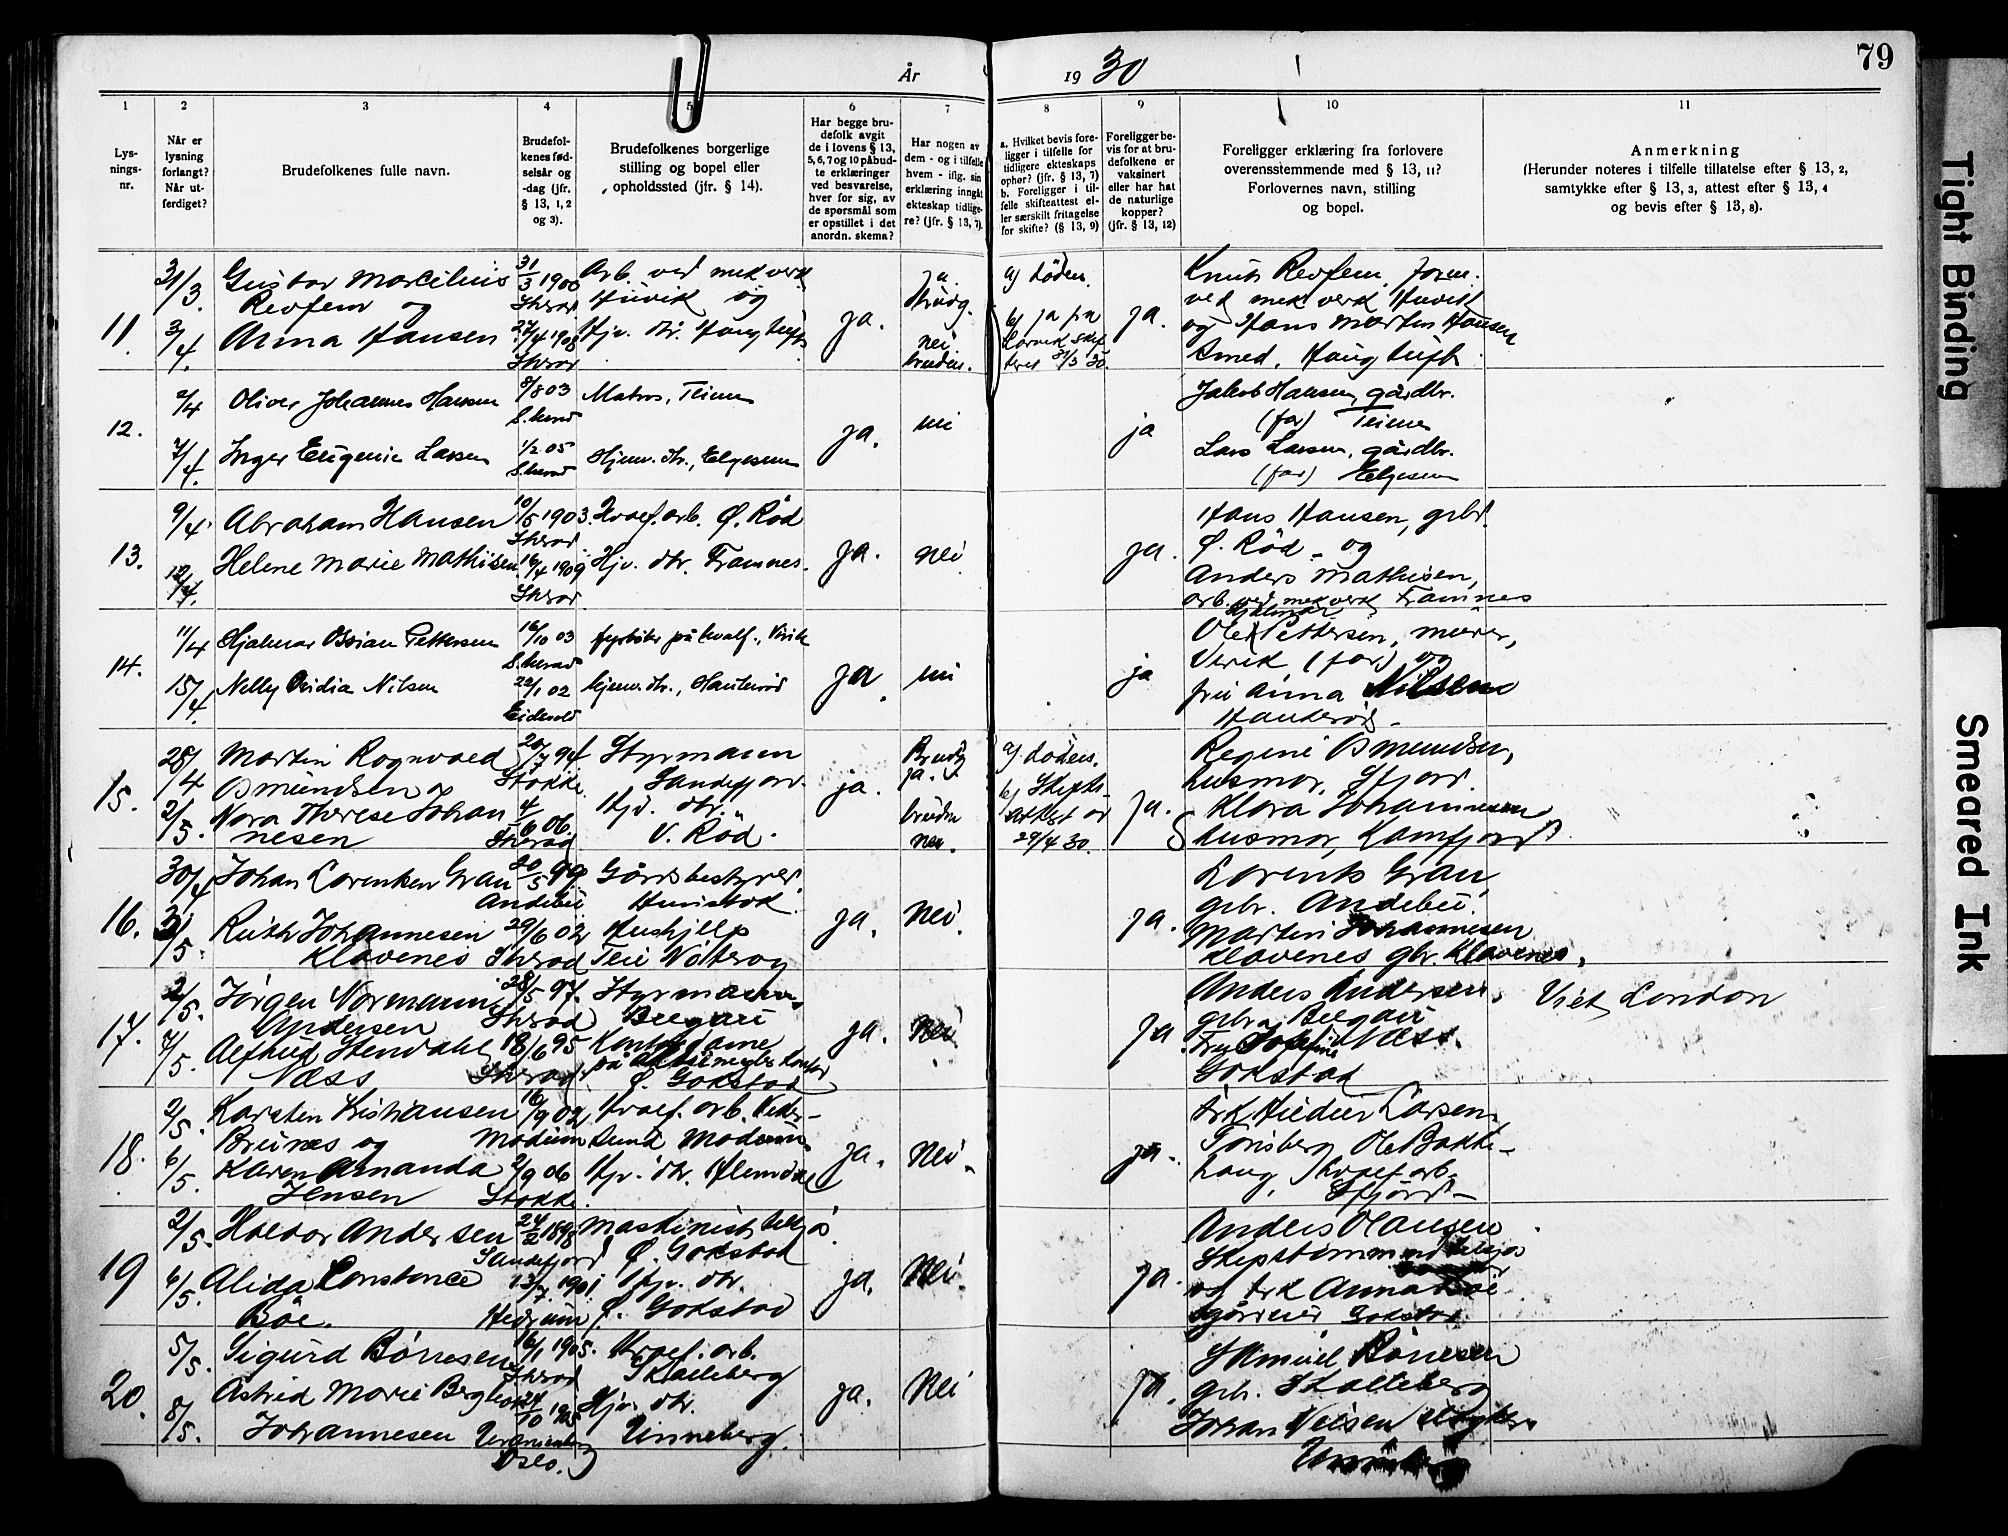 79
År 1930
1 2 3 4 5 6 7 8 9 10 11
Lys-
nings-
nr.
Når er
lysning
forlangt?
Når ut-
ferdiget?
Brudefolkenes fulle navn.
Brudefol-
kenes fød-
selsår og
-dag (jfr.
§ 13, 1, 2
og 3).
Brudefolkenes borgerlige
stilling og bopel eller
opholdssted (jfr. § 14).
Har begge bru-
defolk avgit
de i lovens § 13,
5, 6, 7 og 10 påbud-
te erklæringer
ved besvarelse,
hver for sig, av
de spørsmål som
er opstillet i det
anordn. skema?
Har nogen av
dem - og i tilfelle
hvem - iflg. sin
erklæring inngåt
ekteskap tidlige-
re? (jfr. § 13, 7).
a. Hvilket bevis fore-
ligger i tilfelle for
tidligere ekteskaps
ophør? (jfr. § 13, 7)
b. Foreligger i til-
felle skifteattest el-
ler særskilt fritagelse
for skifte? (§ 13, 9)
Foreligger be-
vis for at bru-
defolkene er
vaksinert
eller har hat
de naturlige
kopper?
(jfr. § 13, 12)
Foreligger erklæring fra forlovere
overensstemmende med § 13, 11?
Forlovernes navn, stilling
og bopel.
Anmerkning
(Herunder noteres i tilfelle tillatelse efter § 13, 2,
samtykke efter § 13, 3, attest efter § 13, 4
og bevis efter § 13, 8).
11.
31/3.
3/4.
Gustav Marcelius
Revfem og
Anna Hansen
31/3 1900
Sherad
27/4 1908
Sherad
Arb. ved mek verk
Huvik og
Hjv. dtr. Haugtuft
ja.
ja.
brudg.
nei
bruden.
a) døden.
b) ja fra
Larvik skif
teret 31/3 30.
ja.
Knut Revfem, form.
ved mek verk Huvik
og Hans Martin Hansen
Smed, Haugtuft
12.
2/4
7/4
Oliver Johannes Hansen
Inger Eugenie Larsen
8/8 03
S.herad
1/2 05
S.herad
Matros, Teimn
Hjemv. dtr., Elgesem
ja.
nei
ja
Jakob Hansen, gårdbr.
(far) Teimn
Lars Larsen, gårdbr.
(far) Elgesem
13.
9/4
12/4.
Abraham Hansen
Helene Marie Mathisen
10/5 1903.
Sherad
16/4 1909
Sherad
Hvalf. arb. Ø. Rød
Hjv. dtr. Framnes.
ja.
nei
ja.
Hans Hansen, grbr.
Ø. Rød - og
Anders Mathisen,
arb. ved mek verk Framnes
14.
11/4
15/4
Hjalmar Ossian Pettersen
Nelly Ovidia Nilsen
16/10 03
S.herad
22/1 02
Eidsvold
fyrbøter på hvalf., Virik
hjemv. dtr., Hauterød
ja.
nei
ja
Hjalmar
Ole Pettersen, murer,
Virik (far) og
fru Anna Nilsen
Hauterød.
15.
28/4
2/5.
Martin Rognvald
Osmundsen og
Nora Therese Johan
nesen
20/7 94
Stokke
4/6 06.
Sherad
Styrmann
Sandefjord.
Hjv. dtr.
V. Rød.
ja.
Brudg
ja.
bruden
nei.
a) dødens.
b) Skifte-
attest av
29/4 30.
ja.
Regine Osmundsen,
husmor, Sfjord.
Klara Johannesen
husmor, Kamfjord
16.
30/4
3/5.
Johan Lorentzen Gran
Ruth Johannesen
Klavenes
30/5 99
Andebu
29/6 02
Sherad
Gårdsbestyrer.
Hunstok.
Hushjelp
Teie Nøterøy
ja.
Nei.
ja.
Lorents Gran
grbr. Andebu.
Martin Johannesen
Klavenes gbr. Klavenes.
17.
2/5.
7/5.
Jørgen Normann
Andersen
Alfhild Stendahl
Næss
28/5 97.
Sherad
18/6 95
Sherad
Styrmann
Bregau
Kontordame
på
Ø. Gokstad
ja.
Nei
ja
Anders Andersen,
grbr. Bregau
Fru Josefine Næss.
Gokstad
Viet, London
18.
2/5.
6/5.
Karsten Kristiansen
Brunæs og
Karen Amanda
Jensen
16/9 02
Modum
2/9 06
Stokke.
Hvalf. arb. Neder-
sund Modum
Hjv. dtr. Hemdal
ja.
Nei.
ja.
frk. Huldur Larsen
Tønsberg Ole Bakke-
haug, hvalf. arb.
Sfjord-
19
2/5.
6/5.
Halvor Andersen
Alida Constance
Bøe.
24/2 1898
Sandefjord
13/7. 1901
Hedrum
Maskinist
Ø. Gokstad
Hjv. dtr.
Ø. Gokstad
ja.
Nei.
ja.
Anders Hansen
Skipstømmermd
og frk Anna Bøe
Gokstad
20.
5/5.
8/5.
Sigurd Børresen
Astrid Marie Berghild
Johannesen
16/1 1905.
Sherad
24/10 1905
Uranienborg
Oslo.
Hvalf. arb.
Skalleberg
Hjv. dtr.
Unneberg.
ja.
Nei
ja.
Samuel Børresen
grbr. Skalleberg
Johan Nilsen
Unneberg
Tight Binding
Smeared Ink